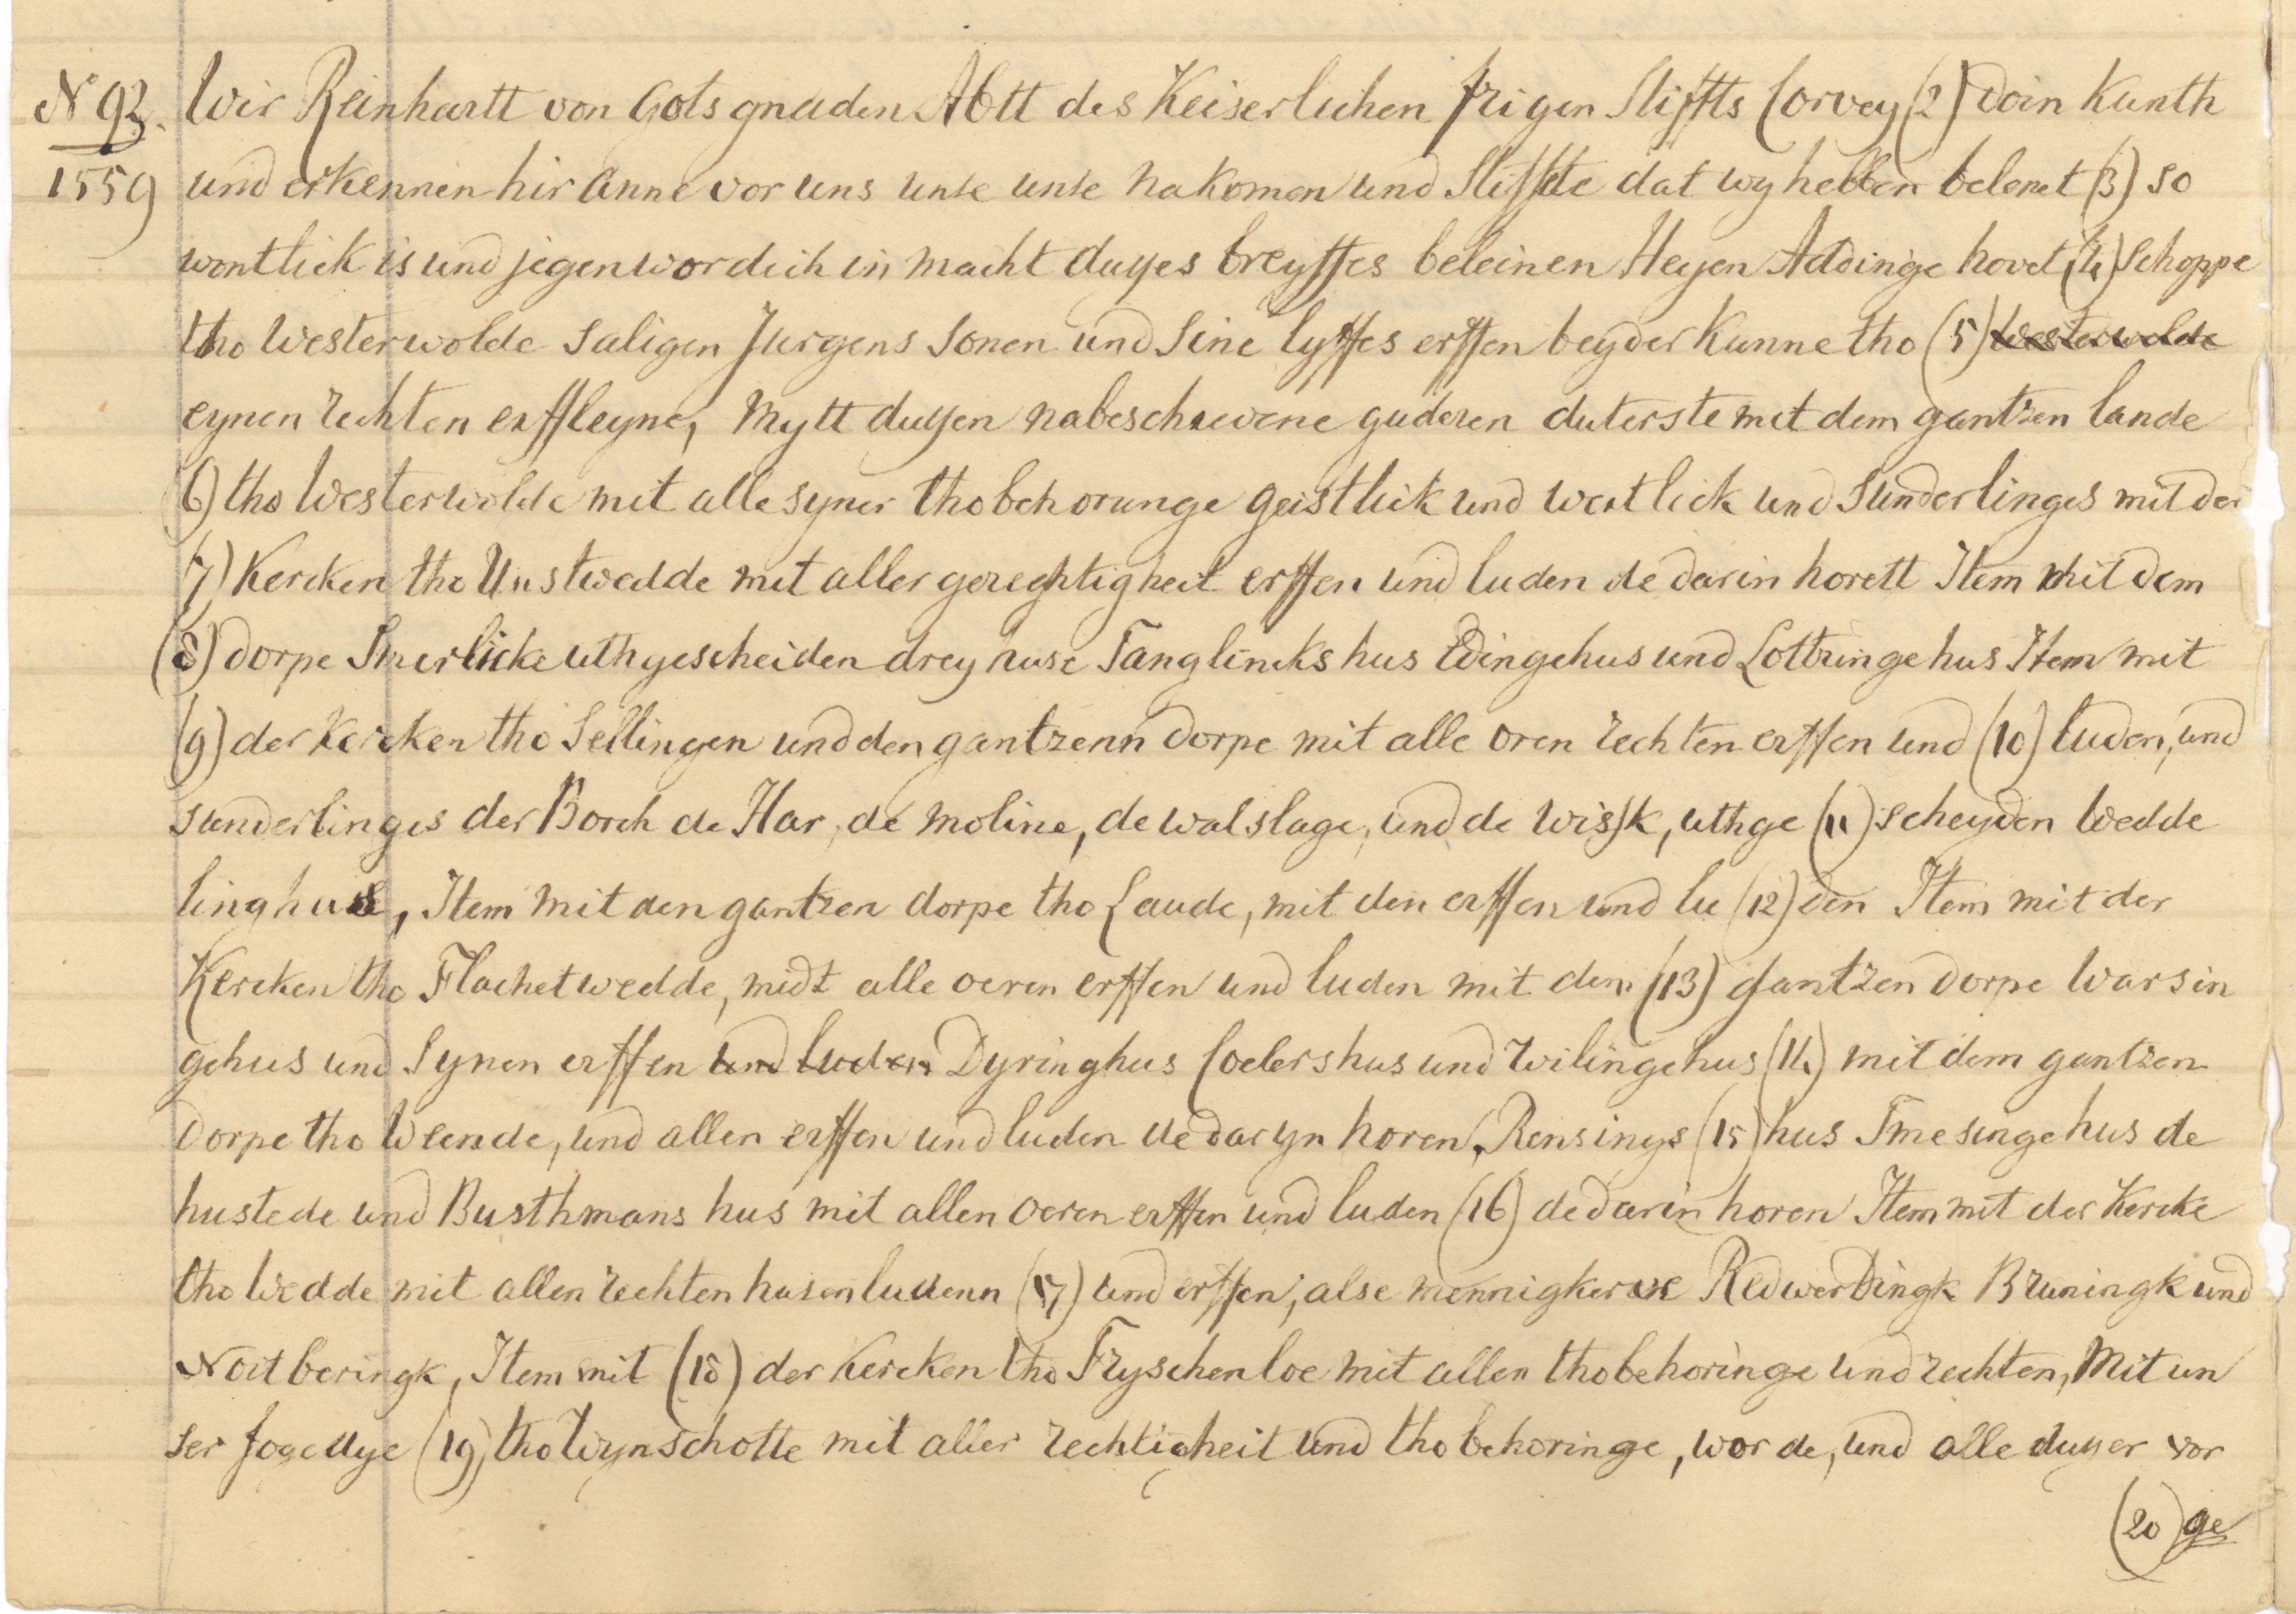 N 92. Wir Reinhartt von Gots gnaden Abtt des Keiserlichen frigen Stiffts Corvey (2) Doin Kunth
1559 und erkennen hir anne vor uns unse unse nakomen und Stiffte dat wy hebben belenet (3) so
wontlick is und jegenwordich in macht duyes breyffes beleinen Heyen Addinge hovet (4) Schoppe
tho Westerwolde Saligen Jurgens Sonen und Sine lyffes erffen beyder Kunne tho (5) Westerwolde
eynen rechten erffleyne, Mytt duyen nabeschrevene guderen duterste met dem gantzen lande
6) tho Westerwolde mit alle syner thobehorunge geistlick und wertlick und Sunderlinges mit der
7) Kercken tho Unstwedde mit aller gerechtigheit erffen und luden de darin horett Item mit dem
(8) dorpe Smerlicke uthgescheiden drey huse Tanglincks hus Edingehus und Lottringe hus Item mit
(9) der Kercken tho Sellingen und den gantzenn dorpe mit alle oren rechten erffen und (10) luden, und
sunderlinges der Borch de Har, de moline, de walslage, und de wisk, uthge (11) scheyden Wedde
linghus, Item mit den gantzen dorpe tho Laude, mit den erffen und lu (12) den Item mit der
Kercken tho Flachetwedde, midt alle oeren erffen und luden mit dem (13) gantzen dorpe Warsin
gehus und Synen erffen und luden Dyringhus Coelershus und Wilingehus (14) mit dem gantzen
Dorpe tho Weende, und allen erffen und luden de daryn horen, Rensings (15) hus Tmesingehus de
hustede und Busthmans hus mit allen oeren erffen und luden (16) de darin horen Item mit der Kercke
tho Wedde mit allen rechten husen ludenn (17) und erffen, alse mennigkerve Redwerdingk Bruningk und
Noitberingk, Item mit (18) der Kercken tho Fryschenloe mit allen thobehoringe und rechten, Mit un
ser fogedye (19) tho Wynschotte mit aller rechtigheit und thobehoringe, worde, und alle duyer vor
(20) ge